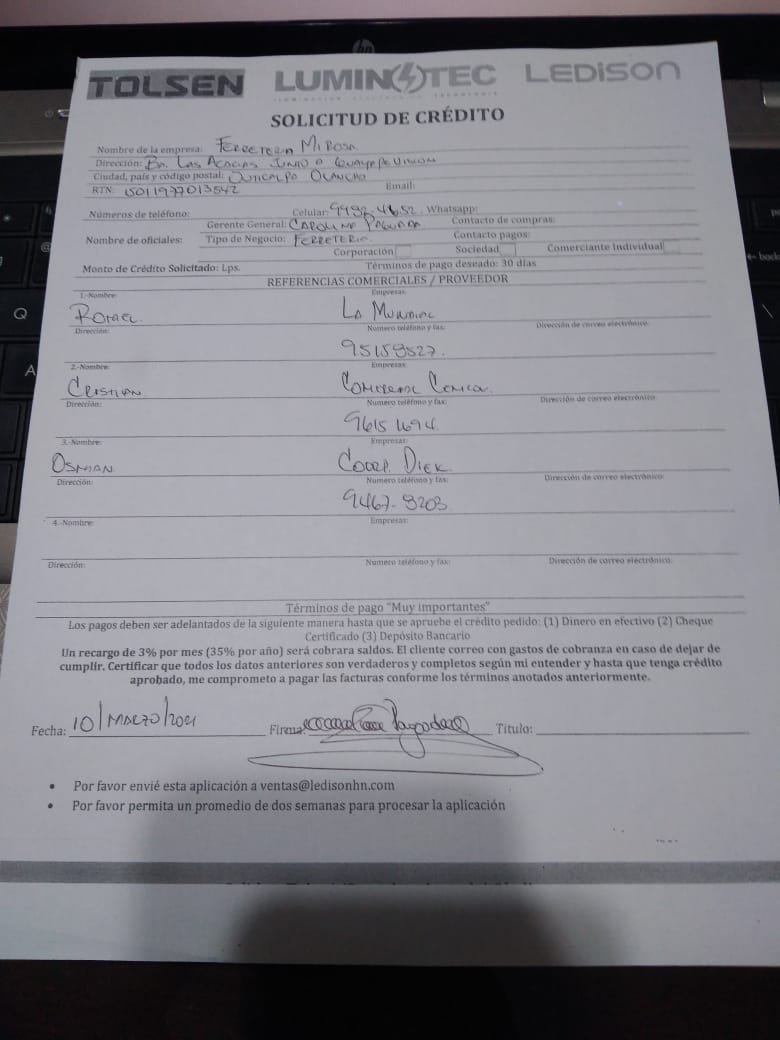 hp
TOLSEN LUMINOTEC LEDISON
SOLICITUD DE CRÉDITO
Nombre de la empresa: FERRETERIA MI ROSA
Dirección: BA. LAS ACACIAS JUNTO A
Ciudad, país y código postal: JUTICALPA OLANCHO
RTN: 15011977013542 Email:
Números de teléfono: Celular: 9992 4652 Whatsapp:
Gerente General: CAROLINA PAGUADA Contacto de compras:
Nombre de oficiales: Tipo de Negocio: FERRETERIA Contacto pagos:
Corporación Sociedad Comerciante Individual
Monto de Crédito Solicitado: Lps. Términos de pago deseado: 30 días
REFERENCIAS COMERCIALES / PROVEEDOR
1.-Nombre: Empresas:
RAFAEL LA MUNDIAL
Dirección: Numero teléfono y fax: Dirección de correo electrónico:
95159527.
2.-Nombre: Empresas:
CRISTIAN
Dirección: Numero teléfono y fax: Dirección de correo electrónico:
9615 1694.
3.-Nombre: Empresas:
OSMAN DIEK.
Dirección: Numero teléfono y fax: Dirección de correo electrónico:
9467-9203
4.-Nombre: Empresas:
Dirección: Numero teléfono y fax: Dirección de correo electrónico:
Términos de pago "Muy importantes"
Los pagos deben ser adelantados de la siguiente manera hasta que se apruebe el crédito pedido: (1) Dinero en efectivo (2) Cheque
Certificado (3) Depósito Bancario
Un recargo de 3% por mes (35% por año) será cobrara saldos. El cliente correo con gastos de cobranza en caso de dejar de
cumplir. Certificar que todos los datos anteriores son verdaderos y completos según mi entender y hasta que tenga crédito
aprobado, me comprometo a pagar las facturas conforme los términos anotados anteriormente.
Fecha: 10/MARZO/2021 Firma: Titulo:
• Por favor envié esta aplicación a ventas@ledisonhn.com
• Por favor permita un promedio de dos semanas para procesar la aplicación